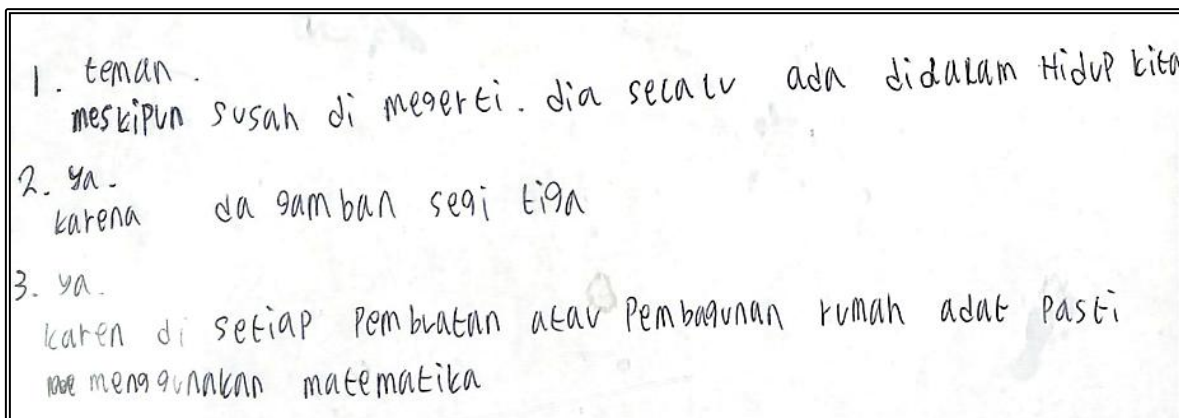 1. teman.
meskipun susah di megerti. dia selalu ada didalam Hidup kita
2. ya.
karena da gamban segi tiga
3. ya.
karen di setiap Pembuatan atau Pembagunan rumah adat Pasti
menggunakan matematika